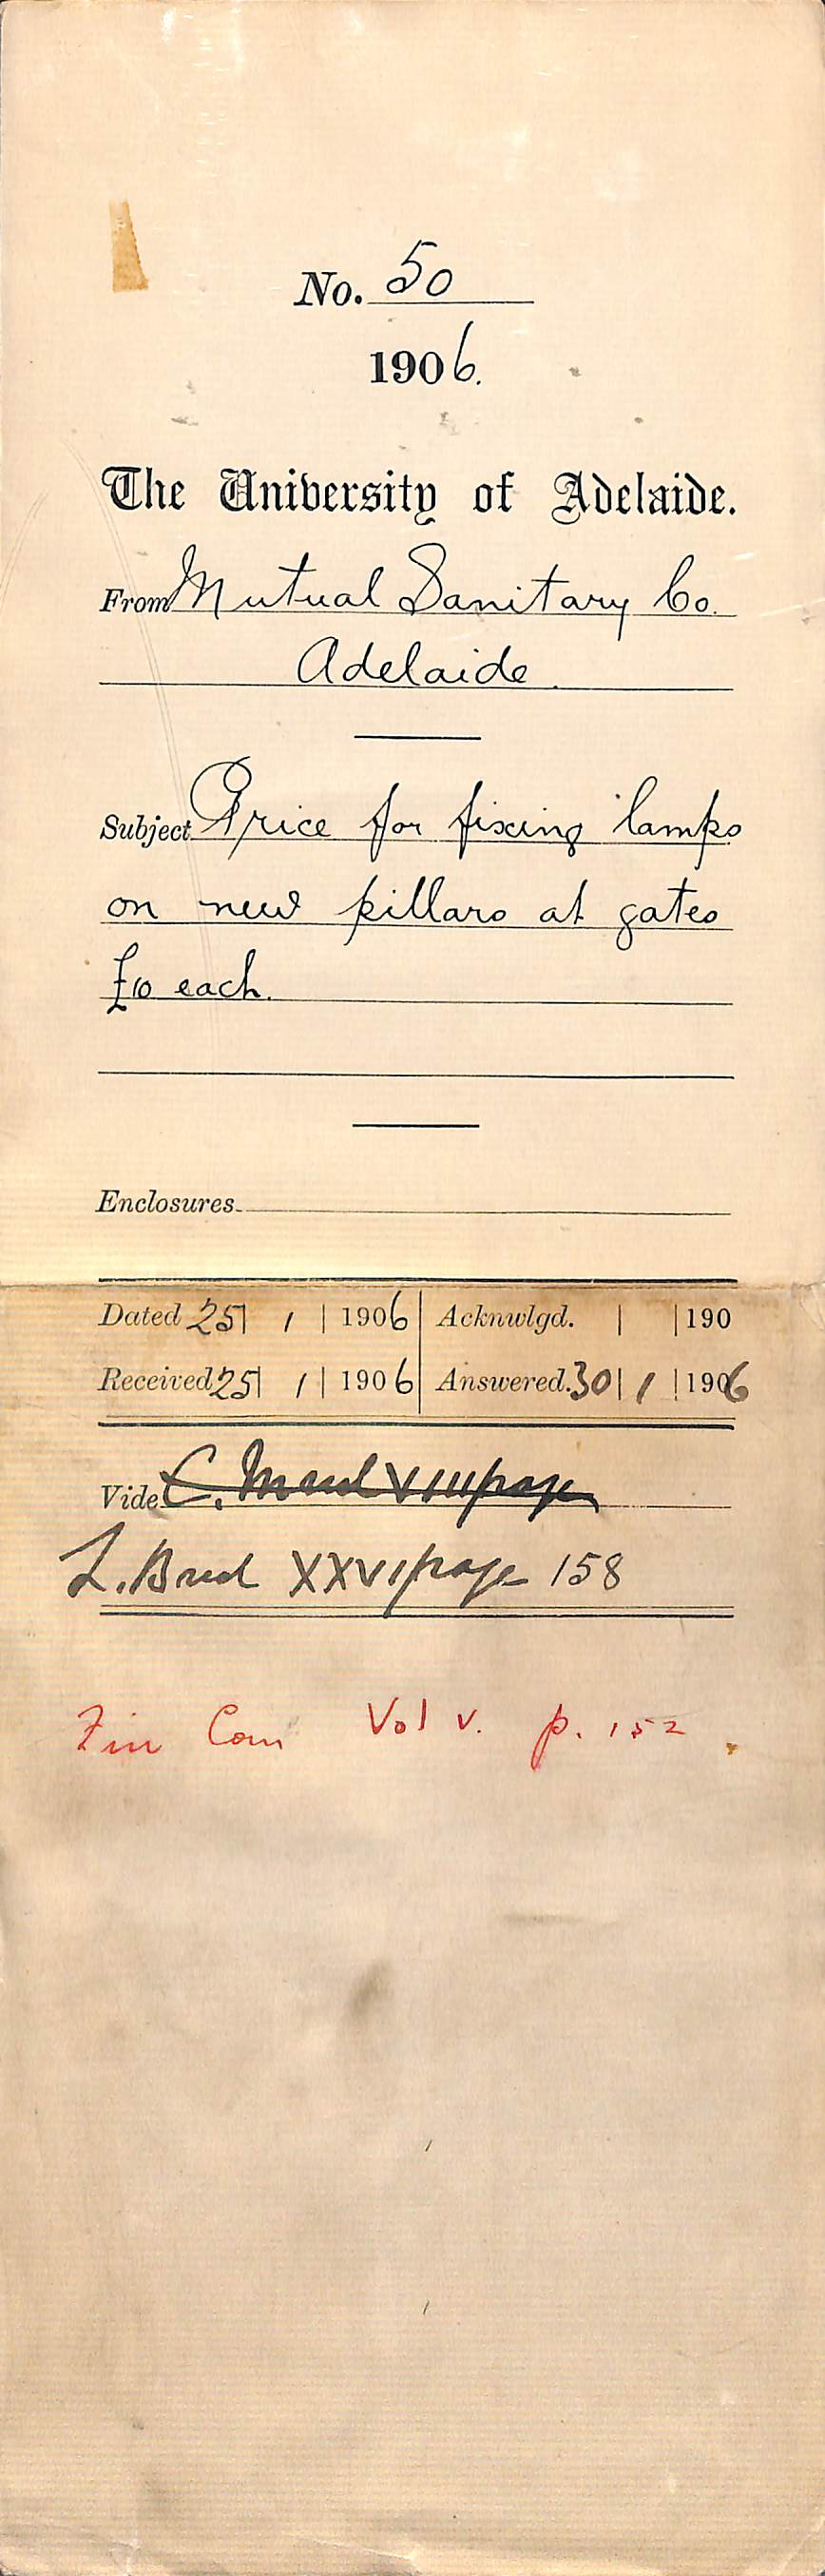 No. 50
1906.
The University of Adelaide.
From Mutual Sanitary Co.
Adelaide.
Subject Price for fixing lamps
on new pillars at gates
£10 each.
Enclosures
Dated 25 | 1 | 1906 | Acknwlgd. | | 190
Received 25 | 1 | 1906 | Answered. 30 | 1 | 1906
Vide C. VIII page
L. XXVI page 158
Fin Com Vol v. p. 152.